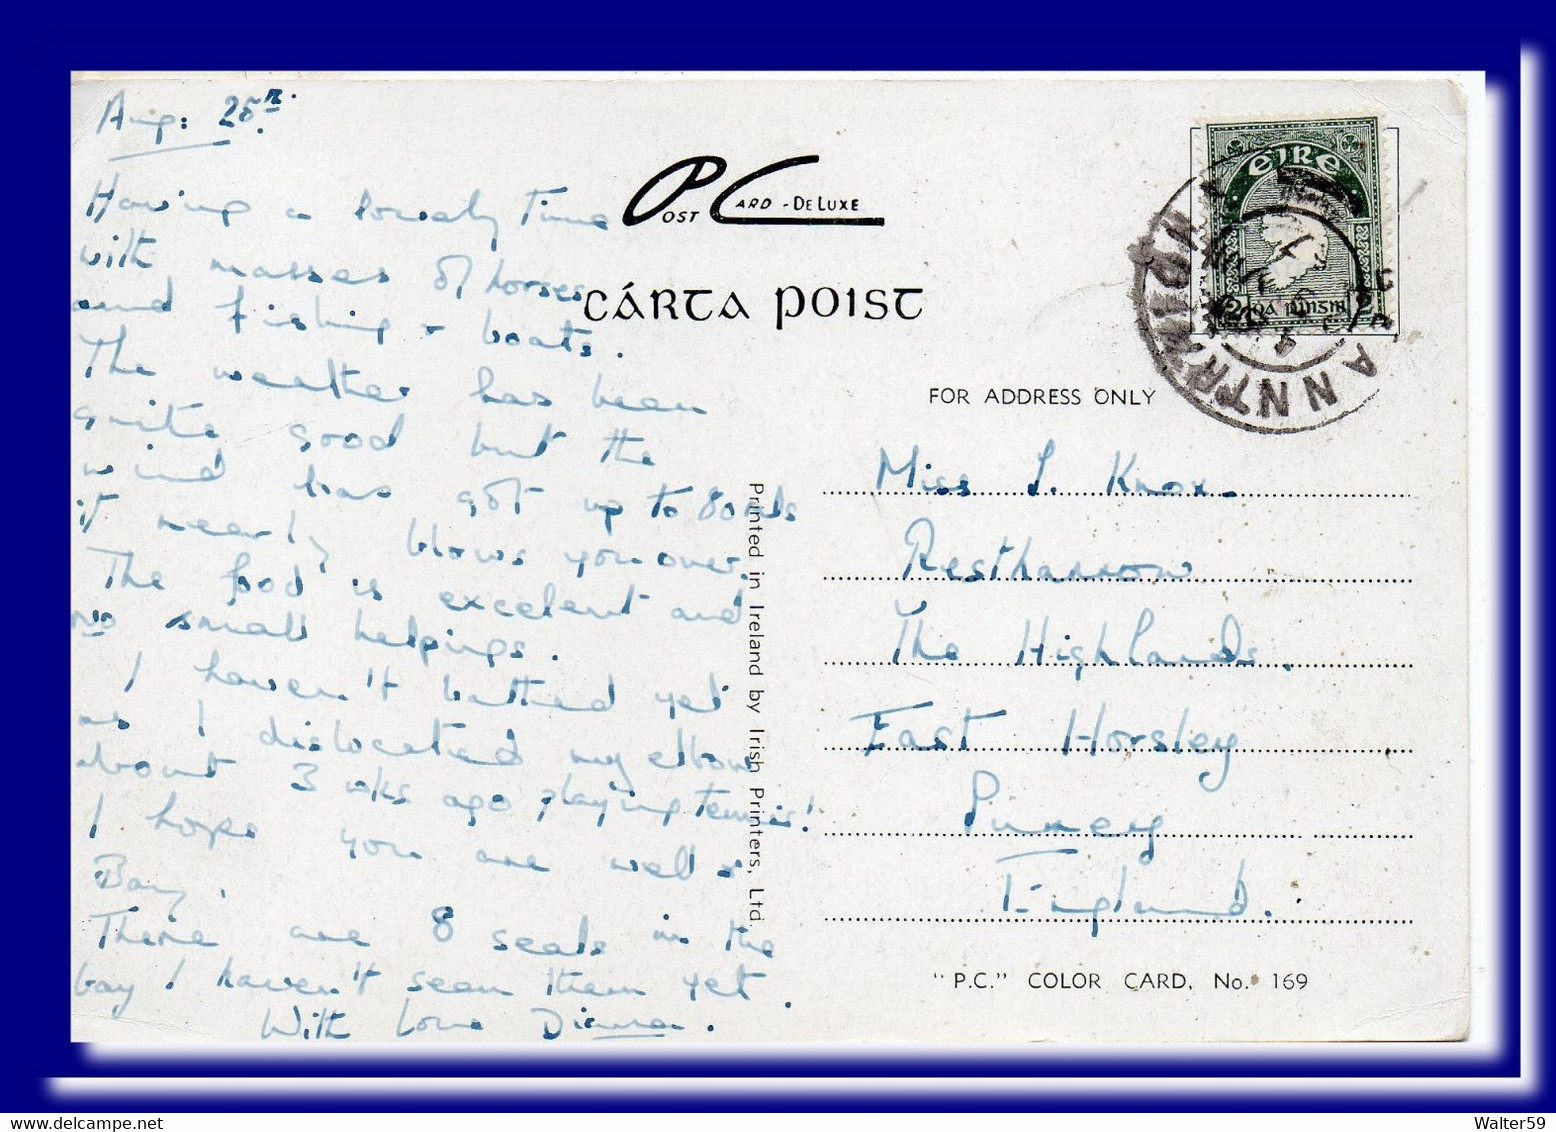 Aug: 25th.
Having a lovely time
with masses of horses
and fishing + boats.
The weather has been
quite good but the
wind has got up to 80 mls
it nearly blows you over.
The food is excelent and
no small helpings.
I haven't bathed yet
as I dislocated my elbow
about 3 wks ago playing tennis!
I hope you are well &
Barry.
There are 8 seals in the
bay I haven't seen them yet.
With love Diana.
POST CARD - DE LUXE
CÁRTA POIST
ÉIRE
2 DA PINGIN
FOR ADDRESS ONLY
Miss J. Knox.
Restharrow
The Highlands.
East Horsley
Surrey
England.
Printed in Ireland by Irish Printers, Ltd.
"P.C." COLOR CARD, No. 169
Walter59